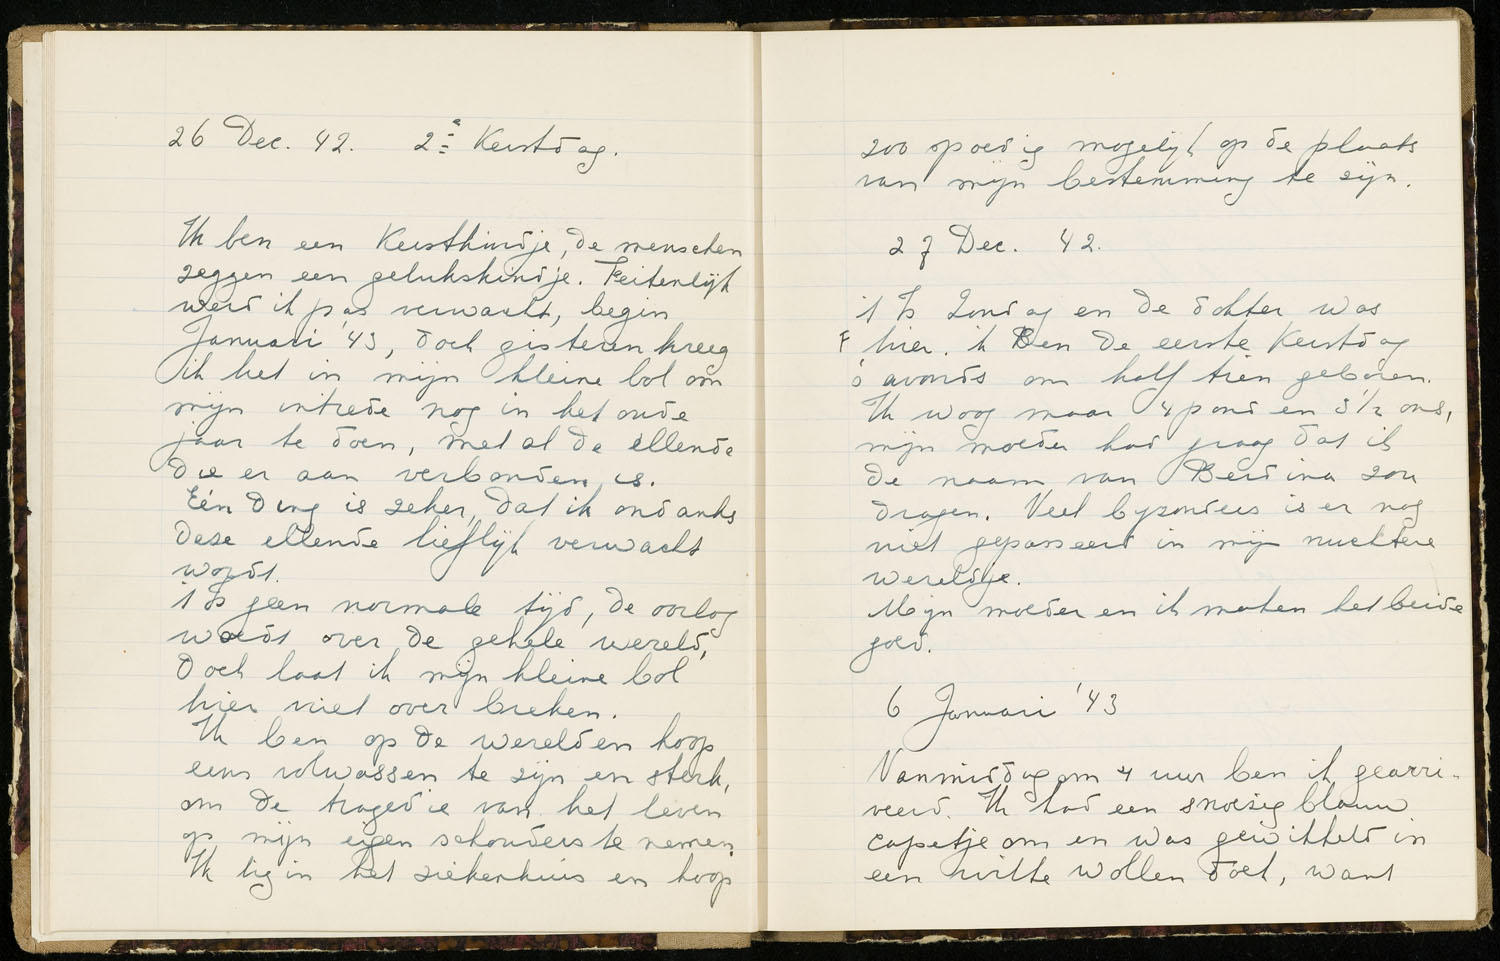 26 Dec. 42. 2e Kerstdag.
Ik ben een Kerstkindje, de menschen
zeggen een gelukskindje. Feitenlijk
werd ik pas verwacht, begin
Januari '43, doch gisteren kreeg
ik het in mijn kleine bol om
mijn intrede nog in het oude
jaar te doen, met al de ellende
die er aan verbonden is.
Eén ding is zeker, dat ik ondanks
deze ellende lieflijk verwacht
wordt.
't Is geen normale tijd, de oorlog
woedt over de gehele wereld,
doch laat ik mijn kleine bol
hier niet over breken.
Ik ben op de wereld en hoop
eens volwassen te zijn en sterk,
om de tragedie van het leven
op mijn eigen schouders te nemen.
Ik lig in het ziekenhuis en hoop
zoo spoedig mogelijk op de plaats
van mijn bestemming te zijn.
27 Dec. 42.
't Is Zondag en de dokter was
hier. ik Ben de eerste Kerstdag
's avonds om half tien geboren.
Ik woog maar 4 pond en 3 1/2 ons,
mijn moeder had graag dat ik
de naam van Berdina zou
dragen. Veel byzonders is er nog
niet gepasseerd in mijn nuchtere
wereldje.
Mijn moeder en ik maken het beide
goed.
6 Januari '43
Vanmiddag om 4 uur ben ik gearri-
veerd. Ik had een snoezig blauw
capetje om en was gewikkeld in
een witte wollen doek, want